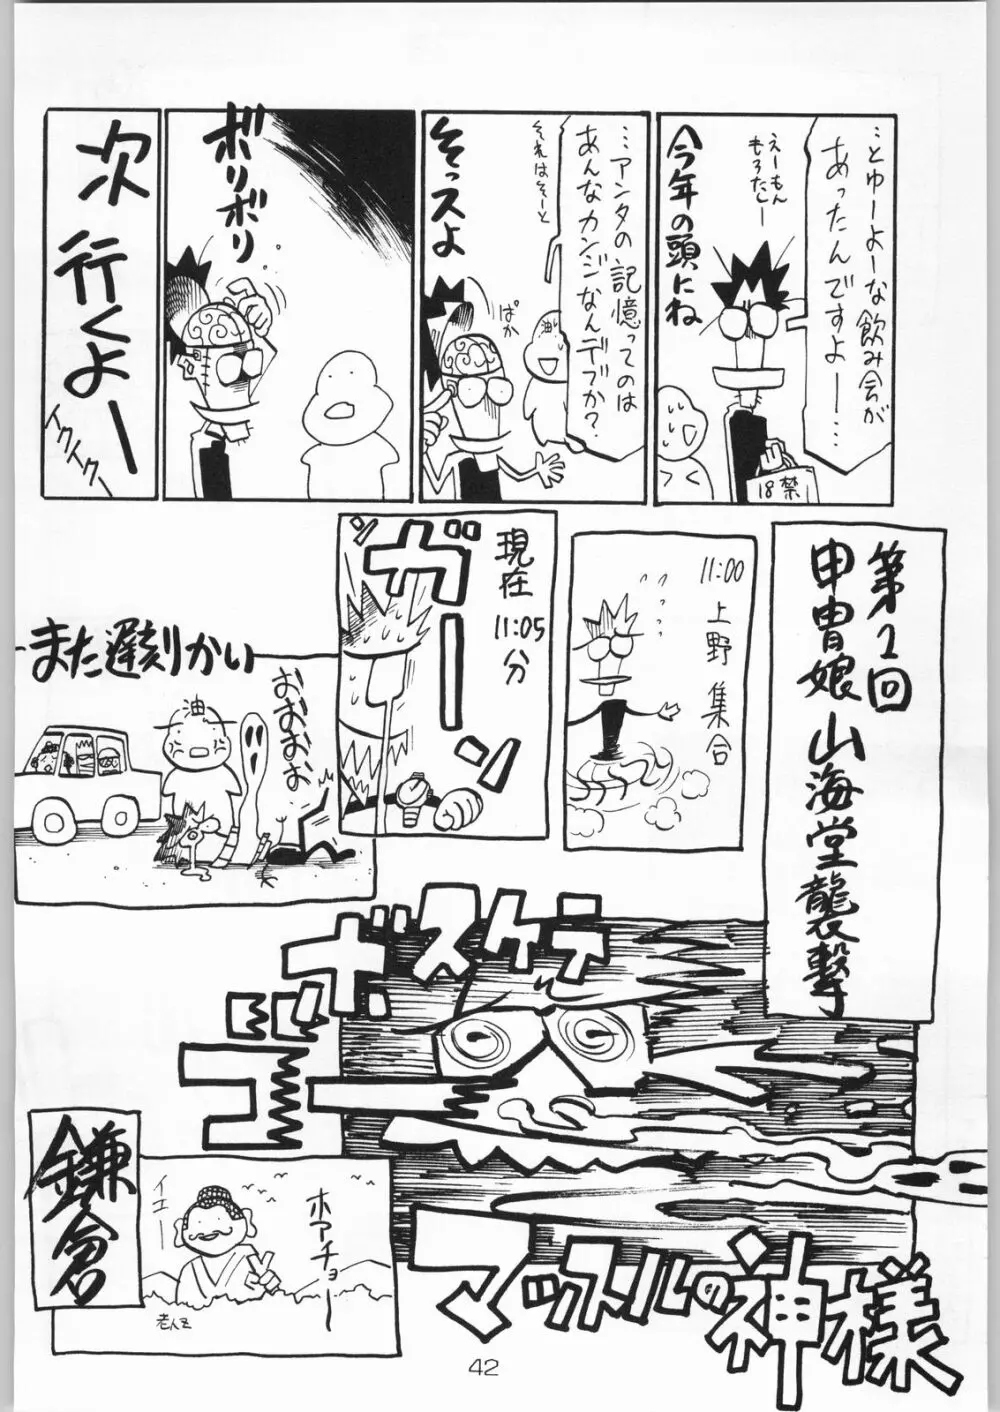 …とゆーよーな飲み会が
あったんですよー…
えーもん
もろたしー
今年の頭にね
18禁
…アンタの記憶っての​は
あんなカンジなんデフか?
それはそーと
そっスよ
ぱか
油
ボリボリ
次行くよー
イクイクー
第2回
甲冑娘山海堂襲撃
11:00
上野集合
現在
11:05分
ガーーン
また遅刻かい
油
おおおお
ボスケテ
ゴーー
マッスルの神様
鎌倉
イエー
ホアチョー
42